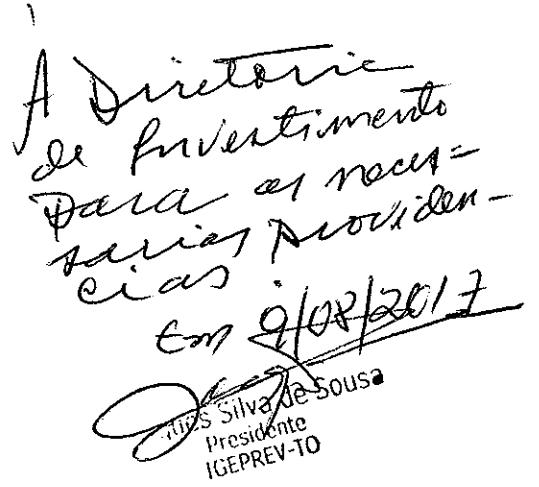 À Diretoria
de Investimento
para as neces=
sarias providen-
cias.
Em 9/08/2017
Silva de Sousa
Presidente
IGEPREV-TO